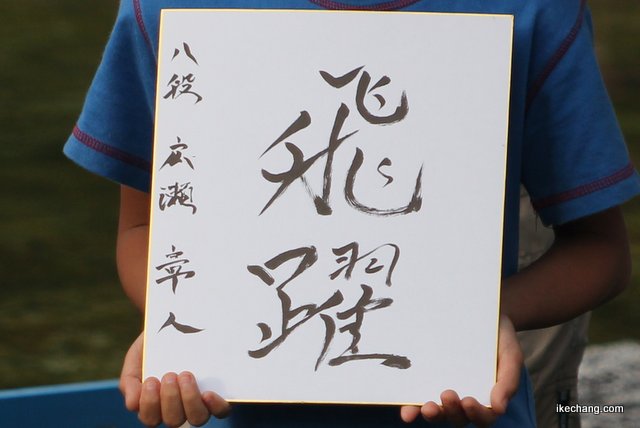 飛躍
八段 広瀬 章人
ikechang.com